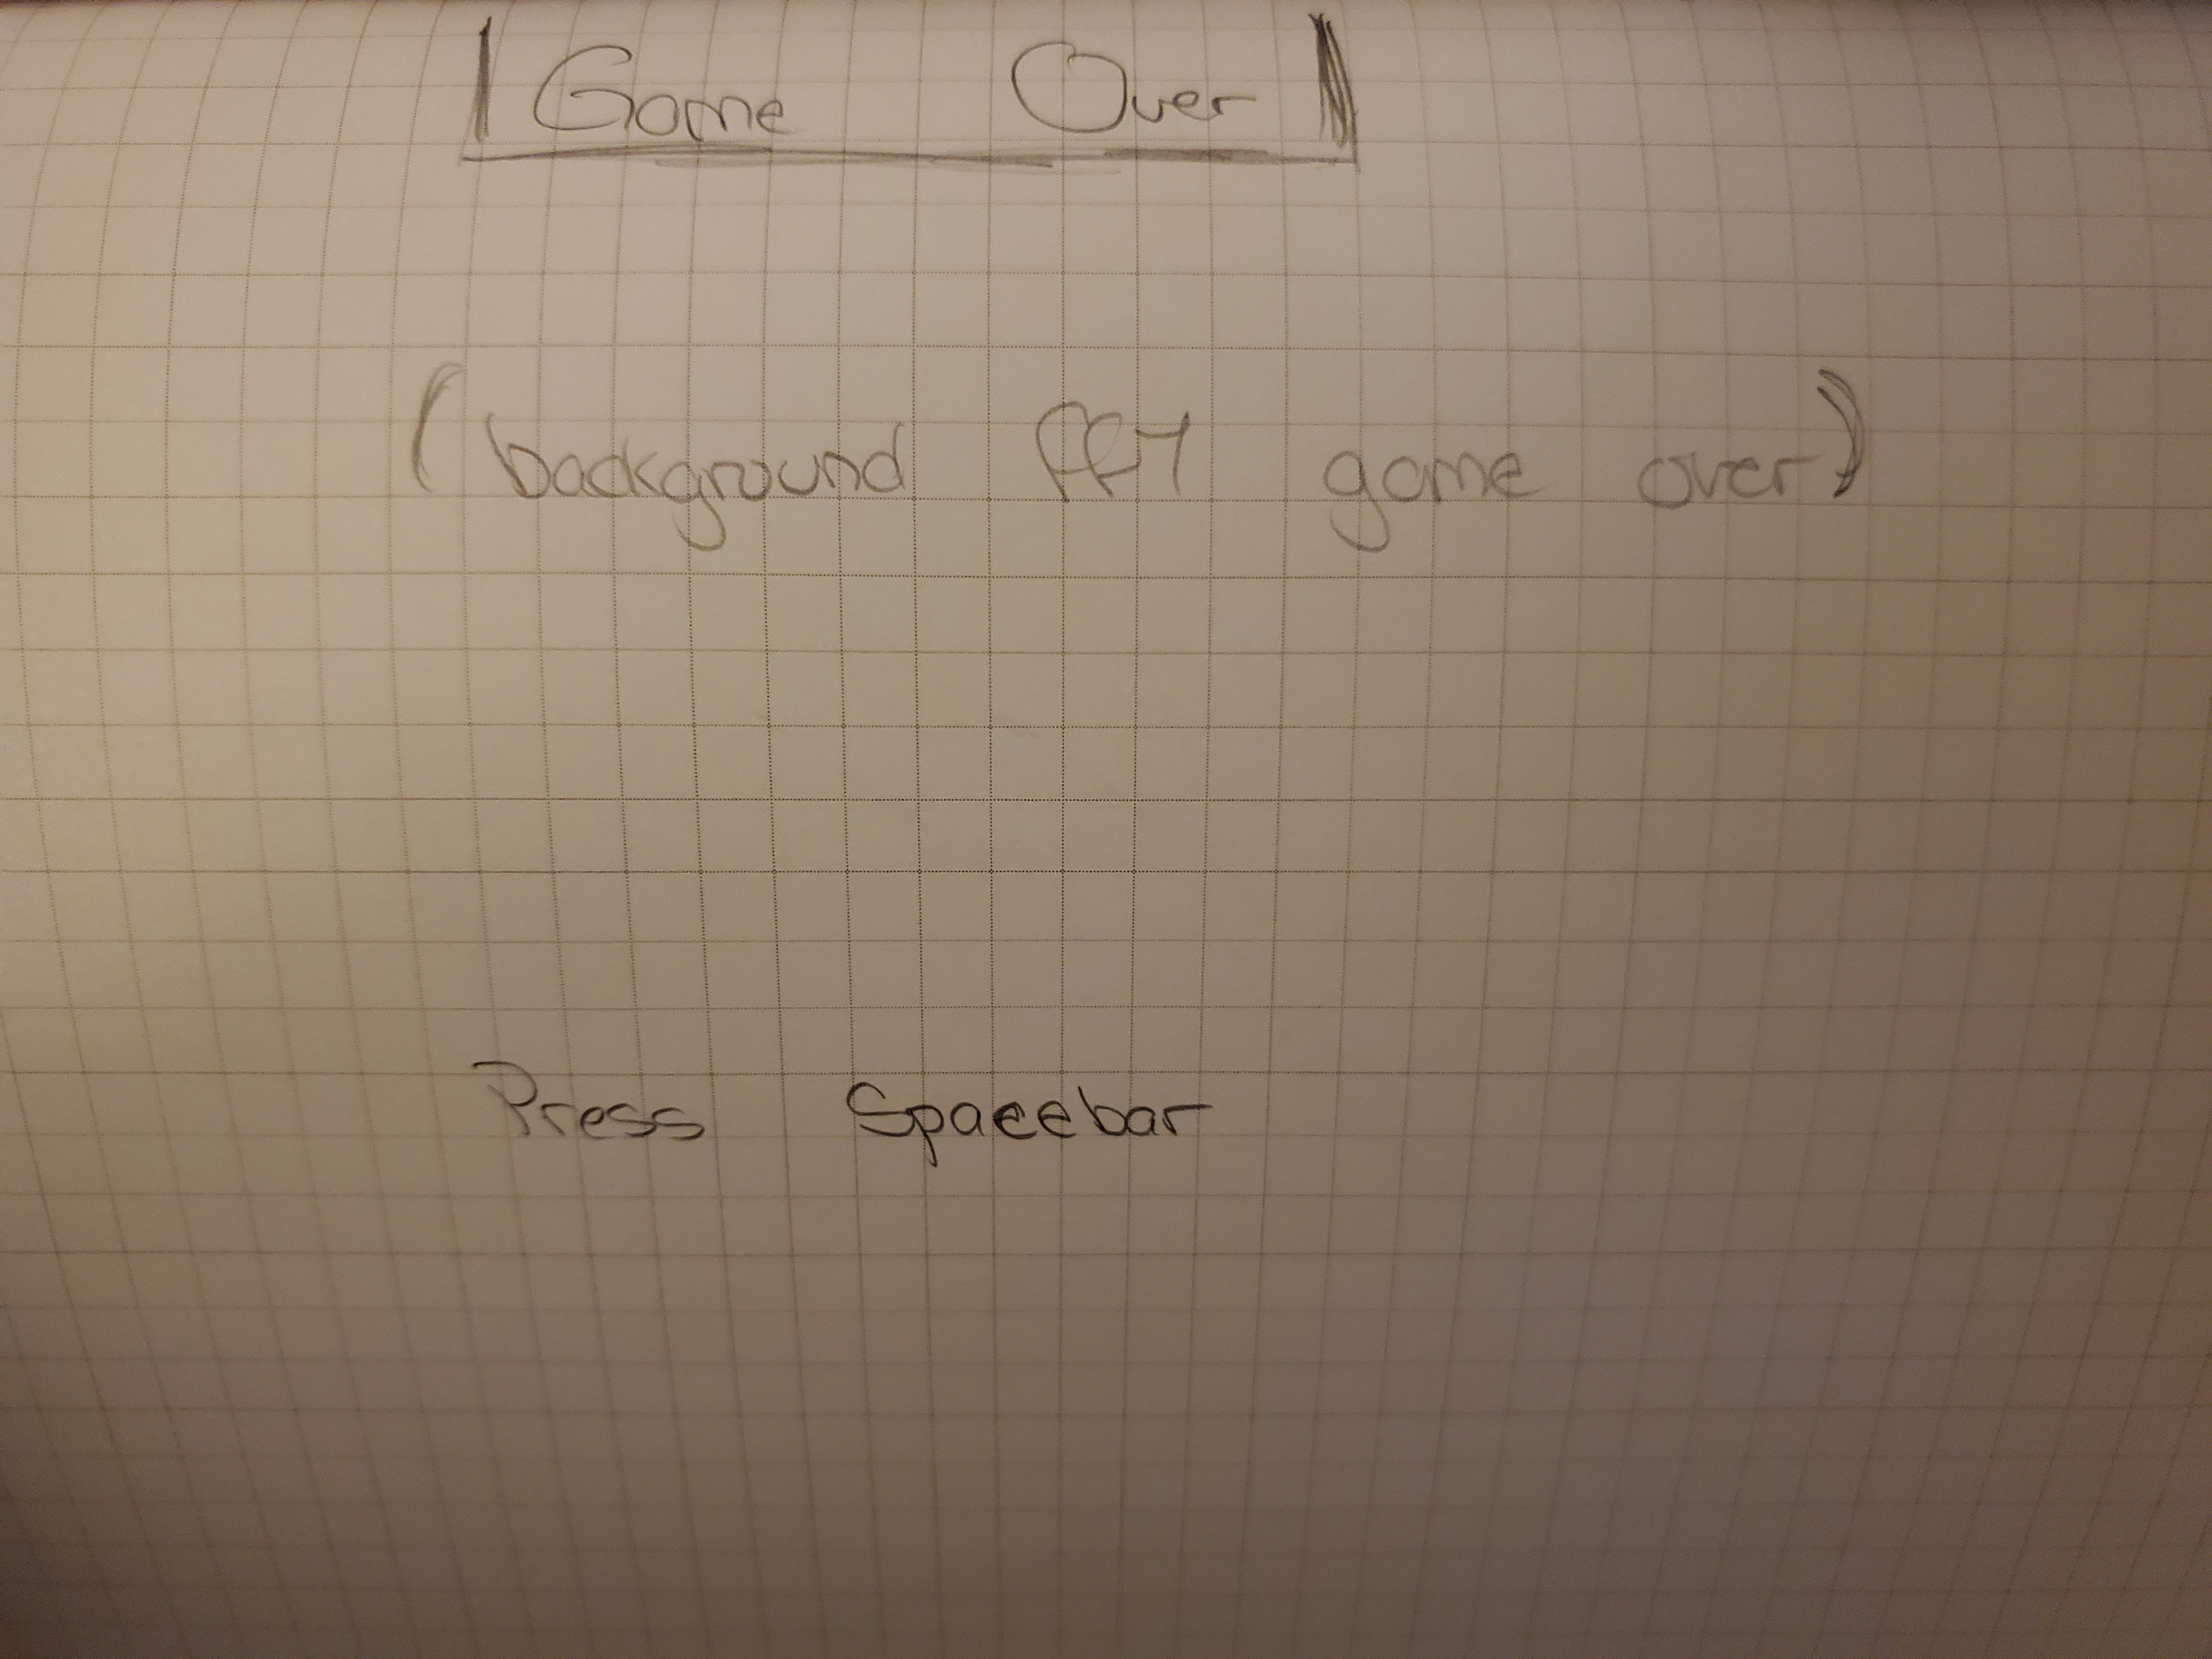 Game Over
(background ff7 game over)
Press Spacebar